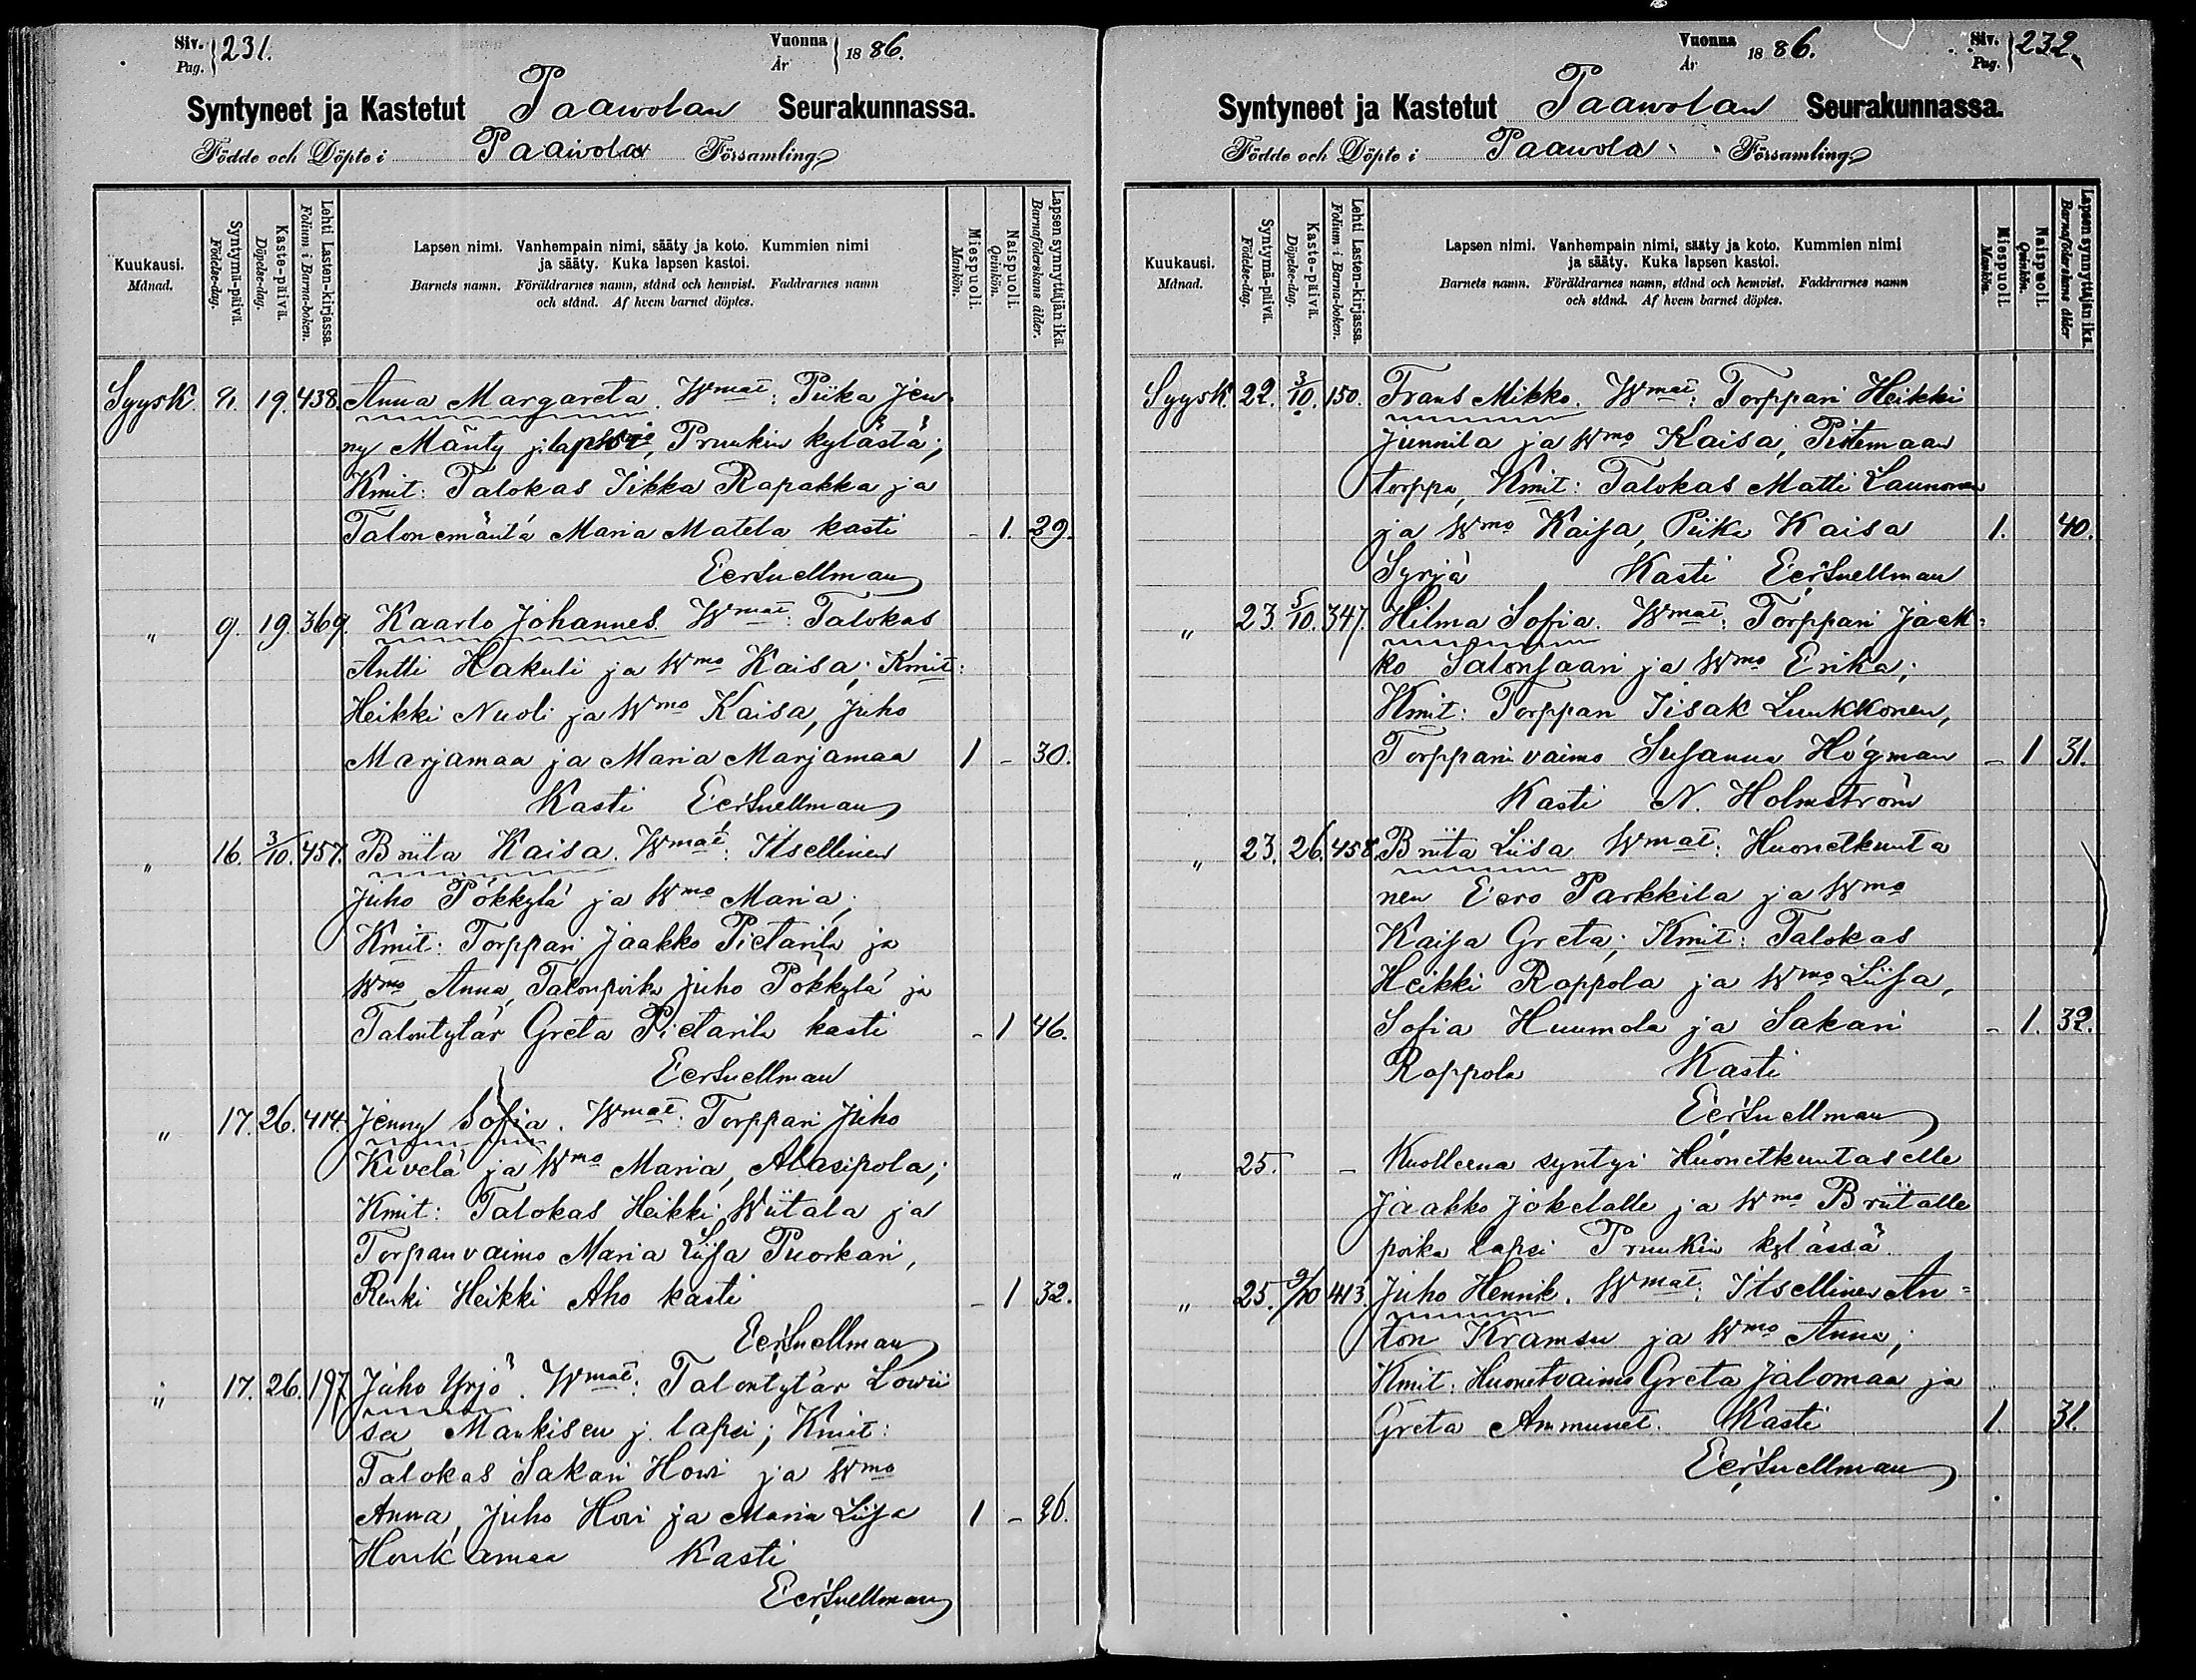 Siv. Pag. 231.
Vuonna År 1886.
Syntyneet ja Kastetut Paawolan Seurakunnassa.
Födde och Döpte i Paavola Församling
Kuukausi. Månad.
Syntymä-päivä. Födelse-dag.
Kaste-päivä. Döpelse-dag.
Lehti Lasten-kirjassa. Folium i Barna-boken.
Lapsen nimi. Vanhempain nimi, sääty ja koto. Kummien nimi
ja sääty. Kuka lapsen kastoi.
Barnets namn. Föräldrarnes namn, stånd och hemvist. Faddrarnes namn
och stånd. Af hvem barnet döptes.
Miespuoli. Mankön.
Naispuoli. Qvinkön.
Lapsen synnyttäjän ikä. Barnaföderskans ålder.
Syysk. 9. 19. 438. Anna Margareta. Wmat: Piika Jen-
ny Mänty j. lapsi, Pruukin kylästä;
Kmit: Talokas Iikka Rapakka ja
Talonemäntä Maria Matela kasti - 1. 29.
EerSnellman
" 9. 19. 369. Kaarlo Johannes Wmat: Talokas
Antti Hakuli ja Wmo Kaisa; Kmit:
Heikki Nuoli ja Wmo Kaisa, Juho
Marjamaa ja Maria Marjamaa 1 - 30.
Kasti EerSnellman
" 16. 3/10. 457. Briita Kaisa. Wmat: Itsellinen
Juho Pökkylä ja Wmo Maria;
Kmit: Torppari Jaakko Pietarila ja
Wmo Anna, Talonpoika Juho Pökkylä ja
Talontytär Greta Pietarila kasti - 1 46.
EerSnellman
" 17. 26. 414. Jenny Sofia. Wmat: Torppari Juho
Kivelä ja Wmo Maria, Alasipola;
Kmit: Talokas Heikki Wiitala ja
Torpanvaimo Maria Liisa Puorkari,
Renki Heikki Aho kasti - 1 32.
EerSnellman
" 17. 26. 197 Juho Yrjö. Wmat: Talontytär Lowii
sa Mankisen j. lapsi; Kmit:
Talokas Sakari Howi ja Wmo
Anna, Juho Howi ja Maria Liisa 1 - 26.
Honkamaa Kasti
EerSnellman
Vuonna År 1886.
Siv. Pag. 232.
Syntyneet ja Kastetut Paawolan Seurakunnassa.
Födde och Döpte i Paawola Församling
Kuukausi. Månad.
Syntymä-päivä. Födelse-dag.
Kaste-päivä. Döpelse-dag.
Lehti Lasten-kirjassa. Folium i Barna-boken.
Lapsen nimi. Vanhempain nimi, sääty ja koto. Kummien nimi
ja sääty. Kuka lapsen kastoi.
Barnets namn. Föräldrarnes namn, stånd och hemvist. Faddrarnes namn
och stånd. Af hvem barnet döptes.
Miespuoli. Mankön.
Naispuoli. Qvinkön.
Lapsen synnyttäjän ikä. Barnaföderskans ålder
Syysk. 22. 3/10. 150. Frans Mikko. Wmat: Torppari Heikki
Junnila ja Wmo Kaisa,
torppa, Kmit: Talokas Matti Launonen
ja Wmo Kaisa, Piika Kaisa 1. 40.
Syrjä Kasti EerSnellman
" 23. 5/10. 347. Hilma Sofia. Wmat: Torppari Jaak-
ko Salonsaari ja Wmo Erika;
Kmit: Torppari Iisak Luukkonen,
Torpparinvaimo Susanna Högman - 1 31.
Kasti N. Holmström
" 23. 26. 458. Briita Liisa Wmat: Huonetkunta
nen Eero Parkkila ja Wmo
Kaisa Greta; Kmit: Talokas
Heikki Rappola ja Wmo Liisa,
Sofia Huumola ja Sakari - 1. 32.
Rappola Kasti
EerSnellman
" 25. - Kuolleena syntyi Huonetkuntaselle
Jaakko Jokelalle ja Wmo Briitalle
poika lapsi Pruukin kylässä.
" 25. 9/10 413. Juho Henrik. Wmat: Itsellinen An-
ton Kramsu ja Wmo Anna;
Kmit: Huonetvaimo Greta Jalomaa ja
Greta Ammunet. Kasti 1. 31.
EerSnellman